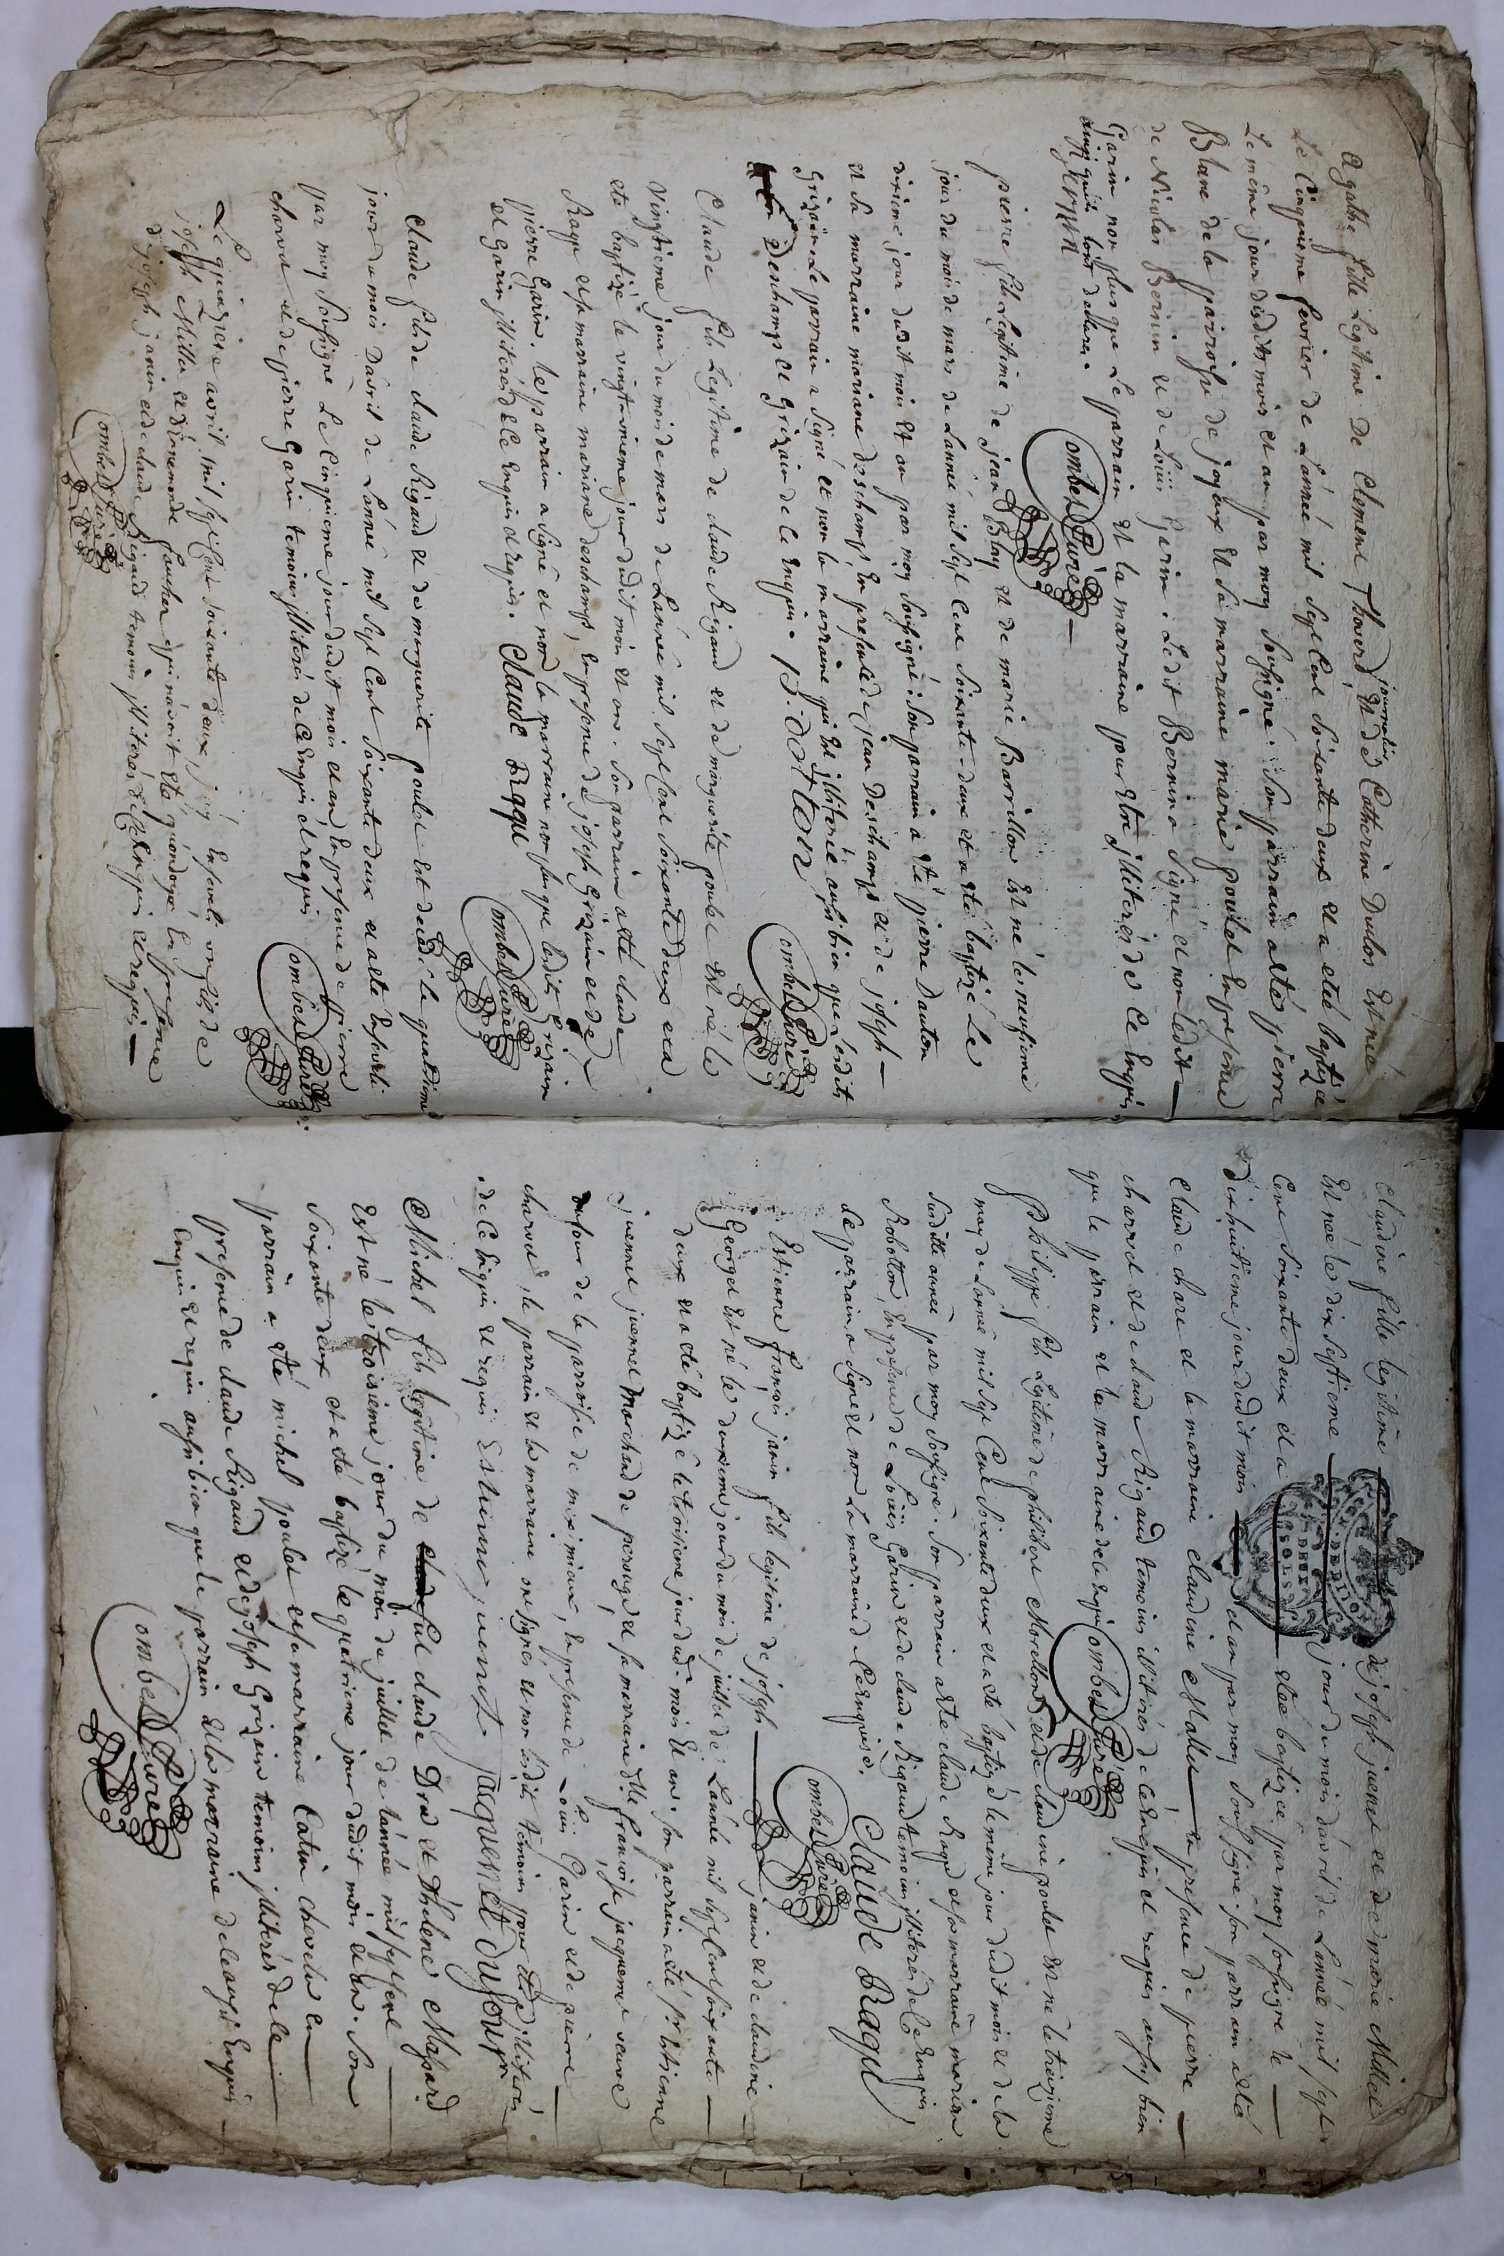 Agathe fille Legitime De Clement Thoverd, journalier et de Catherine Dulos Est née
Le Cinquieme fevrier de L'année mil sept Cent soixante deux et a eté baptizée
Le même jour desdits mois et an par moy soussigné: son parrain a eté pierre
Blanc de la parroisse de joyeux et sa marraine marie poulet En presence
de Nicolas Bernin et de Loüis Gerin. Ledit Bernin a signé et non Ledit
Garin non plus que Le parrain et la marraine pour être illiterés de ce Enquis
ainsi quils l'ont declaré.
Combet Curé
pierre fils Legitime de jean Blay et de marie Barrillon Est né le neufieme
jour du mois de mars de L'année mil sept Cent soixante-deux et a eté baptizé Le
dixieme jour dudit mois et an par moy soussigné: son parrain a eté pierre Dauton
et sa marraine mariane deschamps En presence de jean Deschamps et de joseph
Grizain Le parrain a signé et non la marraine qui Est illiterée aussi bien que lesdits
Deschamps et Grizain de ce Enquis. p. dotton
Combet Curé
Claude fils Legitime de claude Rigaud et de marguerite poulet Est né le
Vingtieme jour du mois de mars de L'année mil sept Cent soixante deux et a
eté baptizé le vingt unieme jour dudit mois et an. son parrain a eté claude
Rage et sa marraine mariane deschamps, en presence de joseph Grizain et de
pierre Garin. le parrain a signé et non la marraine non plus que lesdits Grizain
et Garin illiterés de ce Enquis et requis. Claude Rage
Combet Curé
Claude fils de claude Rigaud et de marguerite poulet Est decedé le quatrieme
jour du mois D'avril de L'année mil sept Cent soixante deux et a eté Enseveli
par moy soussigné Le Cinquieme jour dudit mois et an En presence de pierre
charvet et de pierre Garin temoins illiterés de ce Enquis et requis
Combet Curé
Le quinzieme avril mil sept Cent soixante deux, j'ay Enseveli un fils de
joseph Millet et d'énemonde qui n'avoit eté qu'ondoyé En presence
de joseph janin et de claude Rigaud temoins illiterés de ce Enquis et requis
Combet Curé
Claudine fille legitime de joseph juenet et de marie Millet
Est née le dix septieme jour du mois d'avril de L'année mil sept
Cent soixante deux et a eteé baptizée par moy soussigné le
dixhuitieme jour dudit mois et an par moy soussigné son parrain a eté
Claude chare et la marraine claudine Mallet en presence de pierre
charvet et de claude Rigaud temoins illiterés de ce Enquis et requis aussi bien
que le parrain et la marraine de ce Enquis
Combet Curé
philippe fils Legitime de philibert Morellon et de claudine poulet Est né le treizieme
may de L'année mil sept Cent soixante deux et a eté baptizé le même jour dudit mois et de la
susditte année par moy soussigné. son parrain a eté claude Rage et sa marraine marian
Robollon En presence de Loüis Garin et de claude Rigaud temoins illiterés de ce Enquis
le parrain a signé et non la marraine de ce Enquise.
Claude Rage
Combet Curé
Estienne françois janin fils legitime de joseph janin et de claudine
George Est né le deuxieme jour du mois de juillet de L'année mil sept Cent soixante
deux et a eté baptizé le troisieme jour dud. mois et an. son parrain a eté sr Estienne
juennet juennet Marchand de perouge, et sa marraine dlle françoise jacquemet veuve
dufour de la parroisse de miximieux, En presence de Louis Garin et de pierre
charvet, le parrain et la marraine ont signés et non lesdits temoins pour être illiterés
de ce Enquis et requis Estienne juenet. jaquemet dufour
Michel fils legitime de claude Dru et D'hélene Massard
Est né le troisieme jour du mois de juillet de l'année mil sept Cent
soixante deux et a eté baptizé le quatrieme jour dudit mois et an. son
parrain a eté michel poulet et sa marraine Catin charlu En
presence de claude Rigaud et de joseph Grizain temoins illiterés de ce
Enquis et requis aussi bien que le parrain et la marraine de ce aussi Enquis
Combet Curé